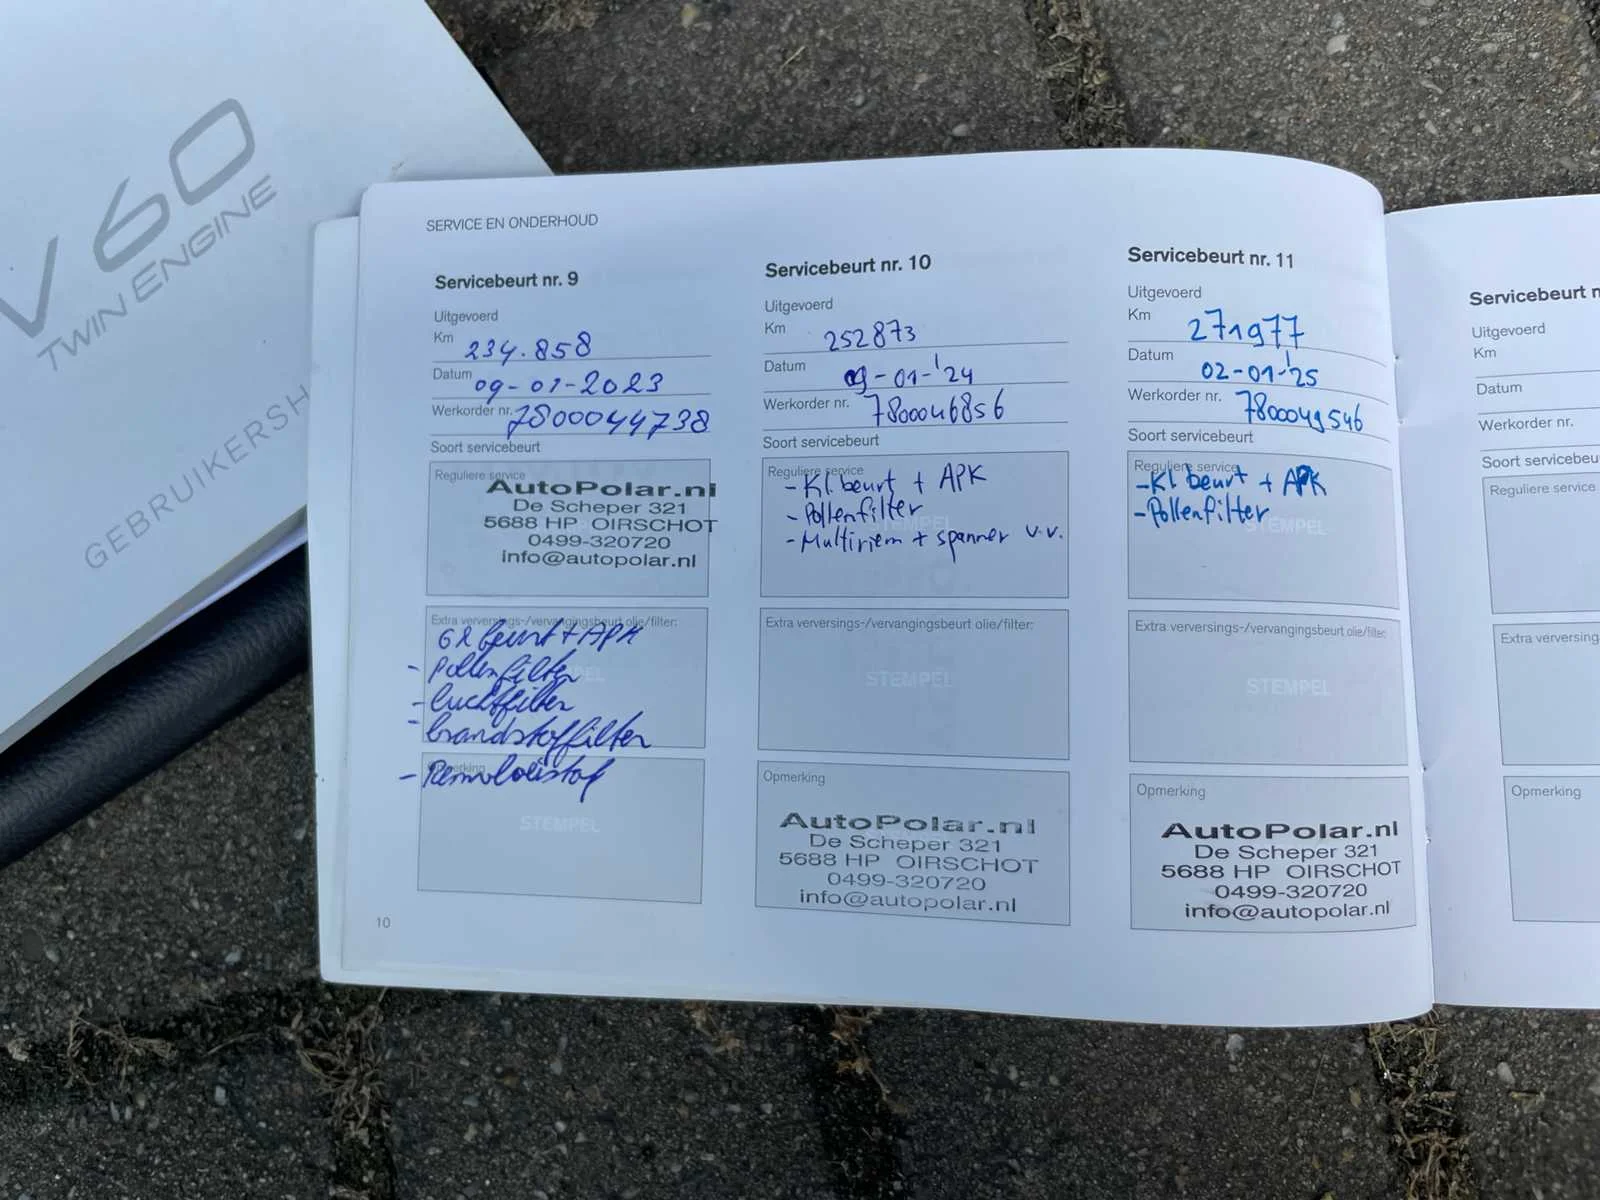 V60
TWIN ENGINE
GEBRUIKERSH
SERVICE EN ONDERHOUD
Servicebeurt nr. 9
Uitgevoerd
Km 234.858
Datum 09-01-2023
Werkorder nr. 7800044738
Soort servicebeurt
Reguliere service
AutoPolar.nl
De Scheper 321
5688 HP OIRSCHOT
0499-320720
info@autopolar.nl
Extra verversings-/vervangingsbeurt olie/filter:
GR beurt + APK
- Pollenfilter
- luchtfilter
- brandstoffilter
- Remvloeistof
STEMPEL
10
Servicebeurt nr. 10
Uitgevoerd
Km 252873
Datum 09-01-'24
Werkorder nr. 7800046856
Soort servicebeurt
Reguliere service
- Kl. beurt + APK
- Pollenfilter
- Multiriem + spanner v.v.
STEMPEL
Extra verversings-/vervangingsbeurt olie/filter:
STEMPEL
Opmerking
AutoPolar.nl
De Scheper 321
5688 HP OIRSCHOT
0499-320720
info@autopolar.nl
Servicebeurt nr. 11
Uitgevoerd
Km 271977
Datum 02-01-'25
Werkorder nr. 7800049546
Soort servicebeurt
Reguliere service
- Kl. beurt + APK
- Pollenfilter
STEMPEL
Extra verversings-/vervangingsbeurt olie/filter:
STEMPEL
Opmerking
AutoPolar.nl
De Scheper 321
5688 HP OIRSCHOT
0499-320720
info@autopolar.nl
Servicebeurt n
Uitgevoerd
Km
Datum
Werkorder nr.
Soort servicebeu
Reguliere service
Extra verversing
Opmerking